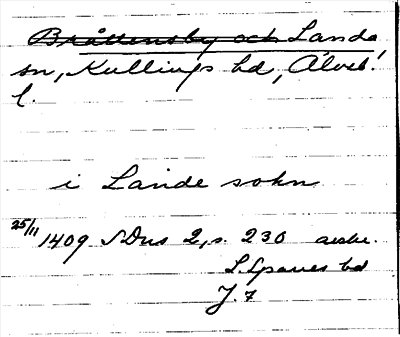 Bråttensby och Landa
sn, Kullings hd, Älvsb.
l.
i Lande sokn
25/11 1409 SDns 2, s. 230 avskr.
L. Spanes bd
J. 7